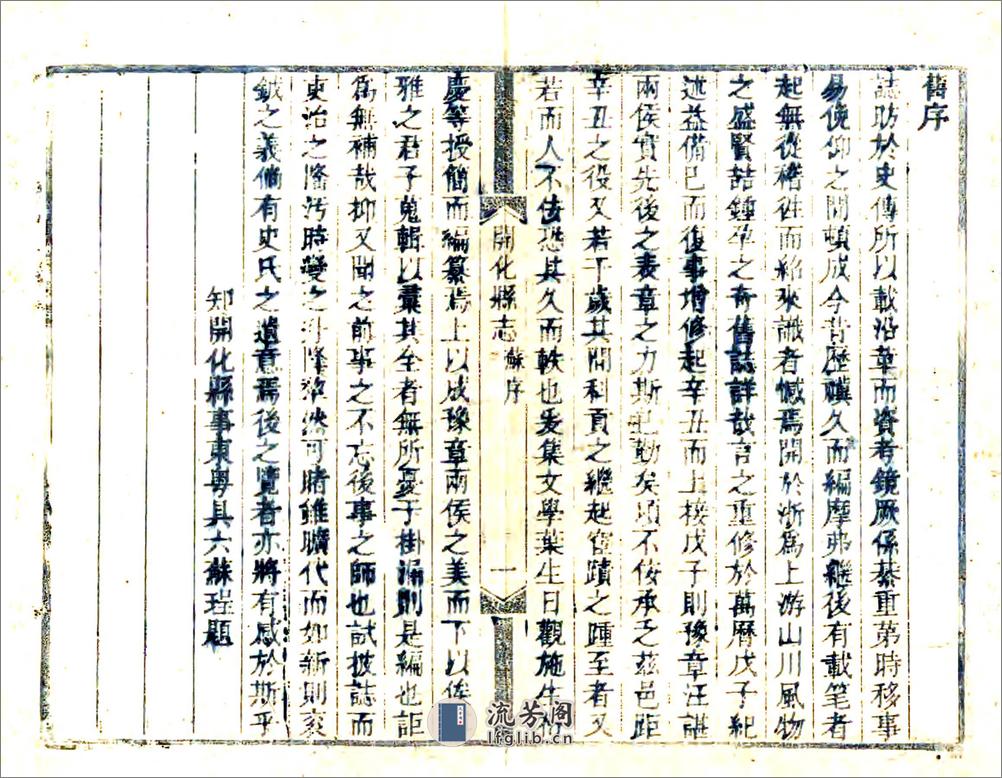 舊序
誌昉於史傳所以載沿革而資考鏡厥係綦重第時移事
易俛仰之間頓成今昔歷禩久而編摩弗繼後有載筆者
起無從稽徃而紹來識者憾焉開於浙爲上游山川風物
之盛賢喆鍾萃之奇舊誌詳哉言之重修於萬曆戊子紀
述益備已而復事增修起辛丑而上接戊子則豫章汪諶
兩侯實先後之表章之力斯已勤矣項不佞承乏茲邑距
辛丑之役又若干歲其間科貢之繼起宦蹟之踵至者又
若而人不佞恐其久而軼也爰集文學葉生日觀施生
開化縣志 蘇序 一
慶等授簡而編纂焉上以成豫章兩侯之美而下以俟
雅之君子蒐輯以彙其全者無所憂于掛漏則是編也詎
爲無補哉抑又聞之前事之不忘後事之師也試披誌而
吏治之隆汚時變之升降犂然可睹雖曠代而如新則衮
鉞之義倘有史氏之遺意焉後之覽者亦將有感於斯乎
知開化縣事東粤具六蘇珵題
流芳阁
lfglib.cn